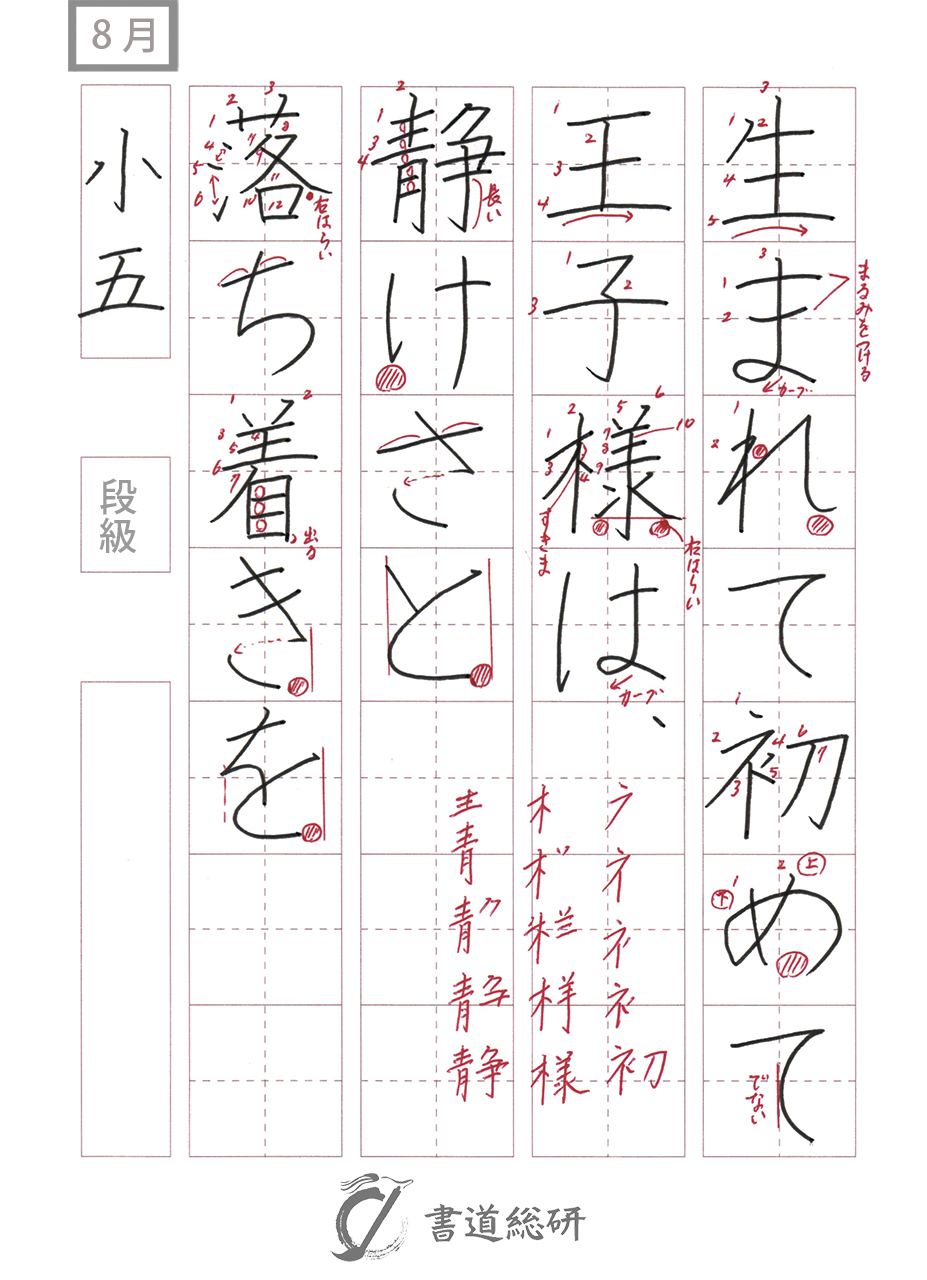 8月
生まれて初めて
王子様は、
静けさと
落ち着きを
小五
段級
まるみをつける
カーブ
でない
上
下
すきま
右はらい
カーブ
長い
右はらい
出る
初
様
静
書道総研